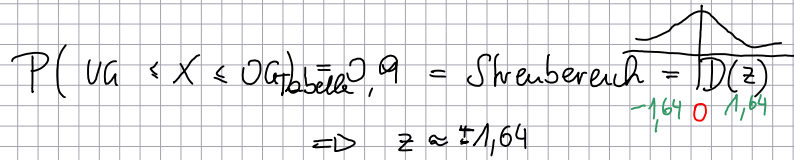 P( UG ≤ X ≤ OG) = 0,9 = Streubereich = D(z)
Tabelle
-1,64 0 1,64
=> z ≈ ±1,64